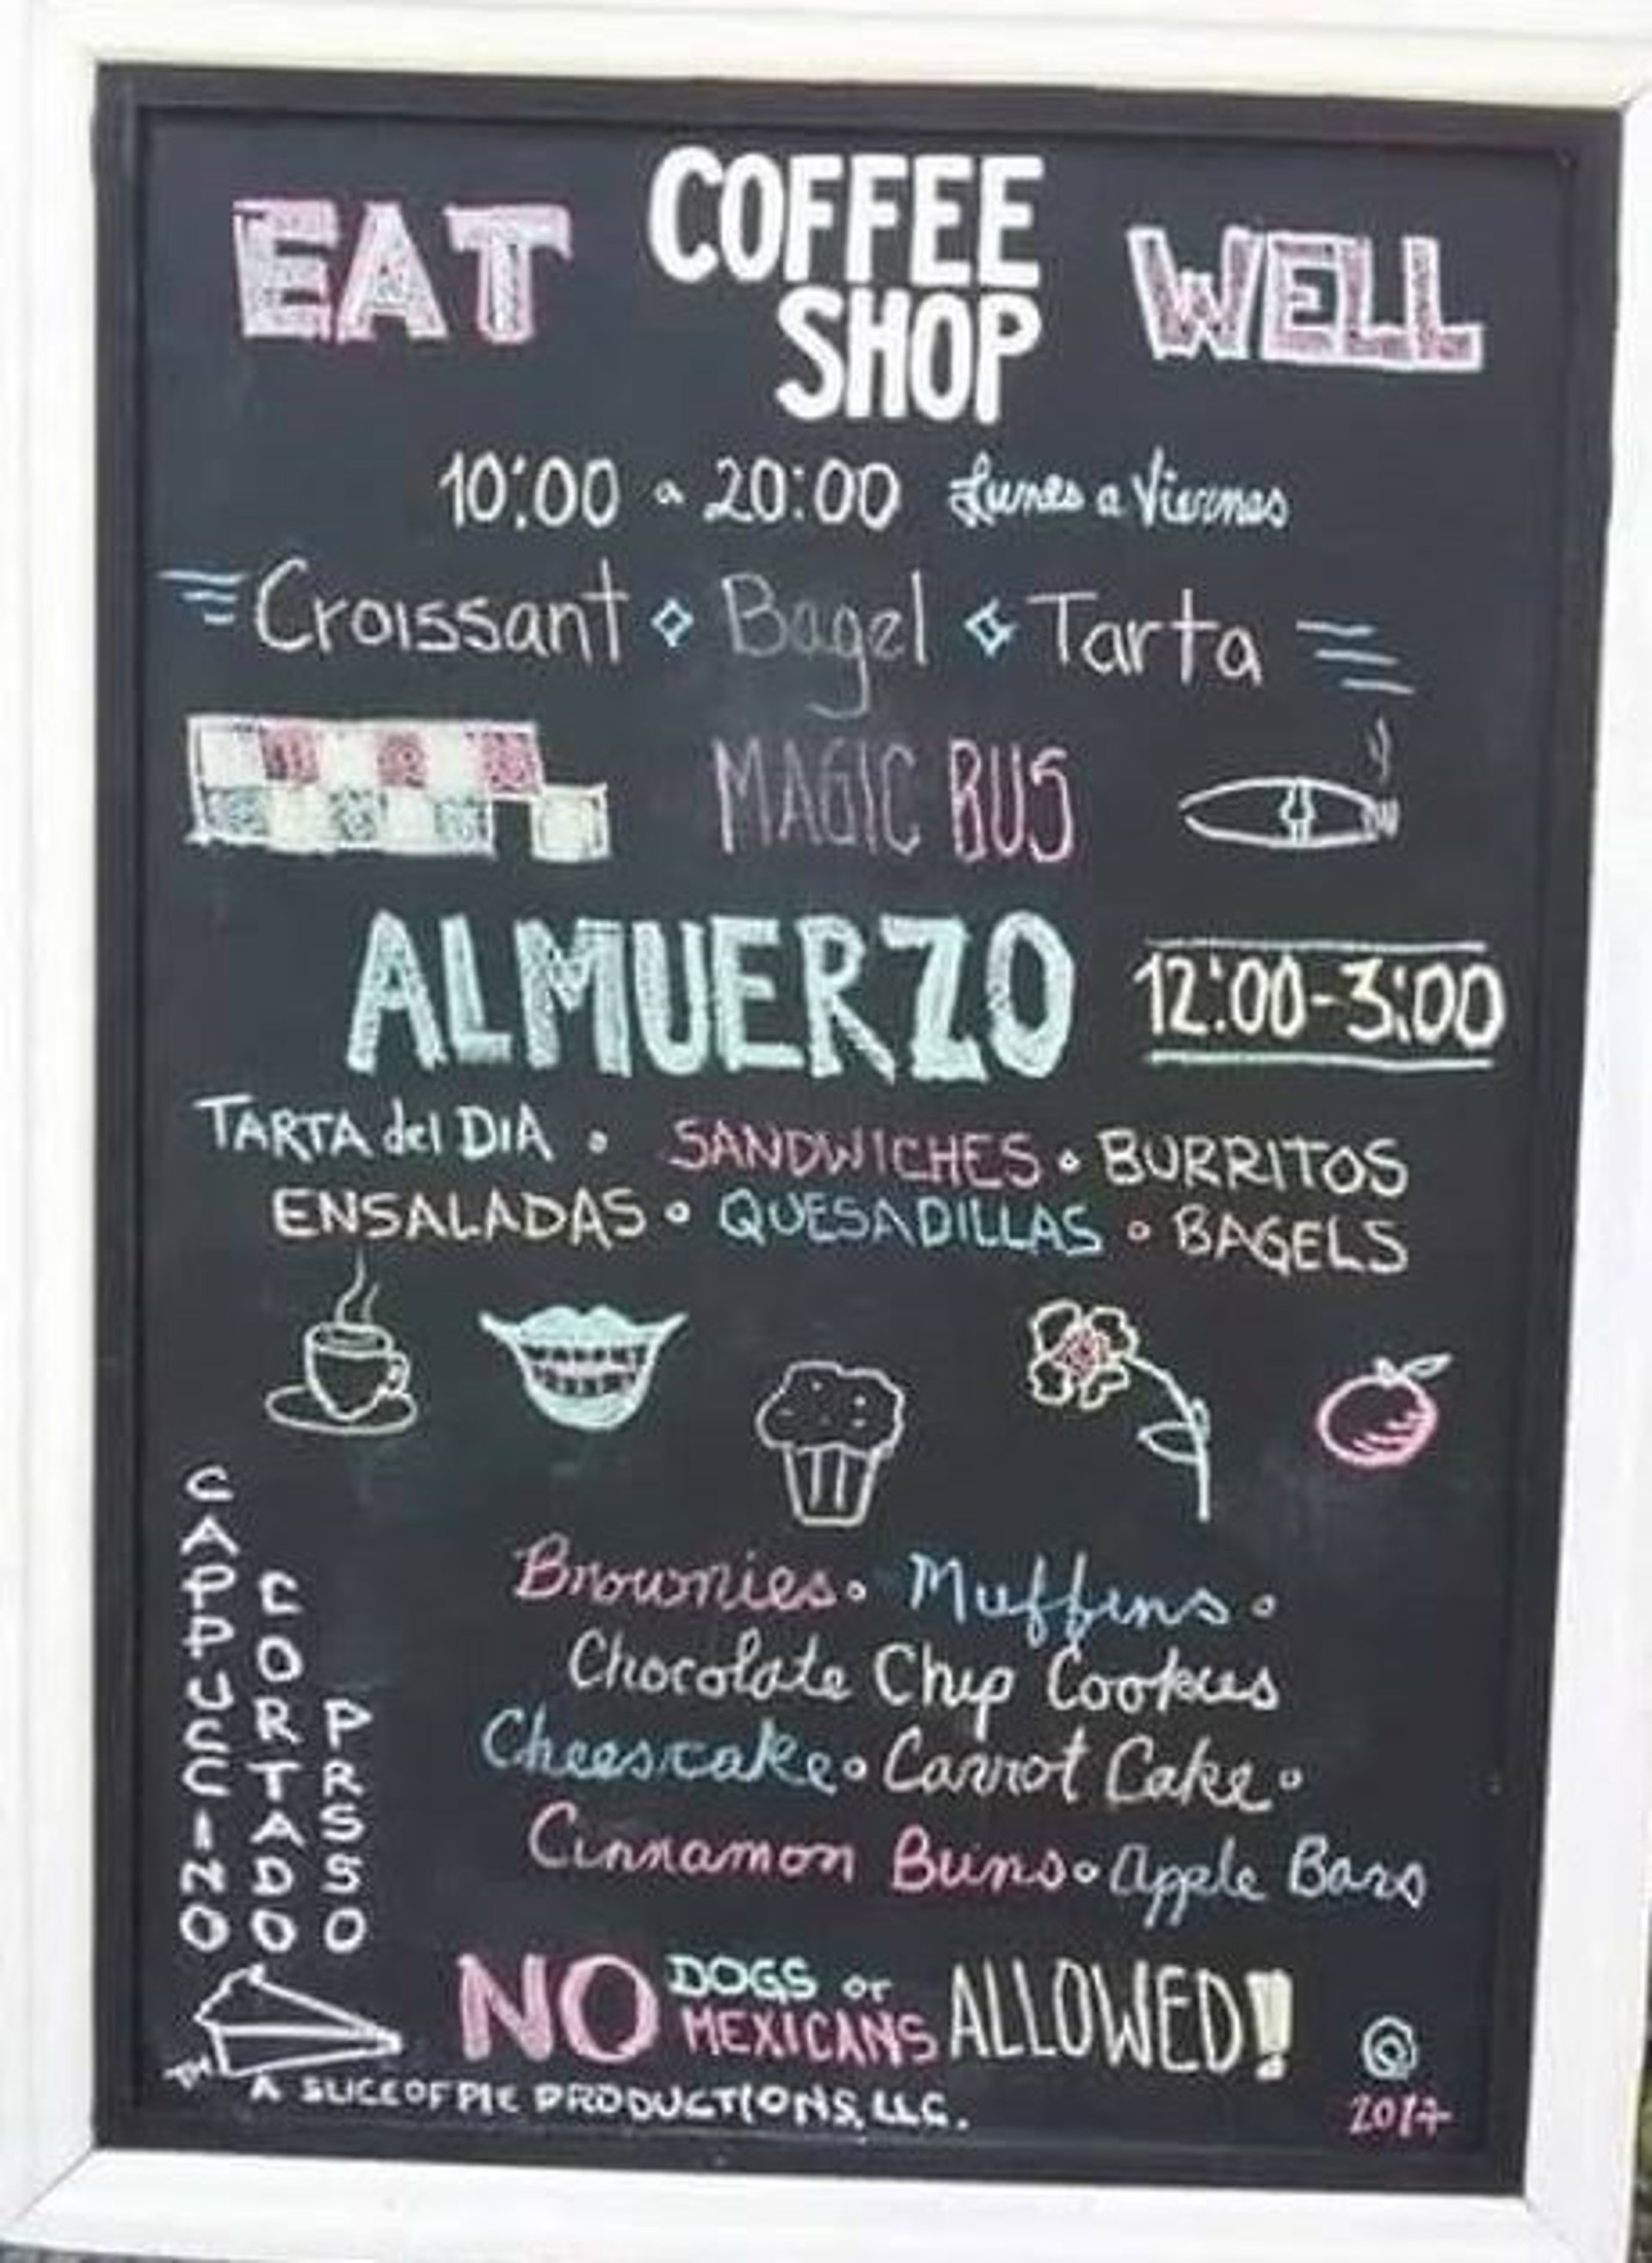 EAT COFFEE SHOP WELL
10:00 a 20:00 Lunes a Viernes
Croissant Bagel Tarta
MAGIC BUS
ALMUERZO 12:00-3:00
TARTA del DIA • SANDWICHES • BURRITOS
ENSALADAS • QUESADILLAS • BAGELS
CAPPUCCINO
CORTADO
PRSSO
Brownies • Muffins •
Chocolate Chip Cookies
Cheesecake • Carrot Cake •
Cinnamon Buns • Apple Bars
NO DOGS or MEXICANS ALLOWED!!
TM A SLICE OF PIE PRODUCTIONS, LLC.
Q
2017